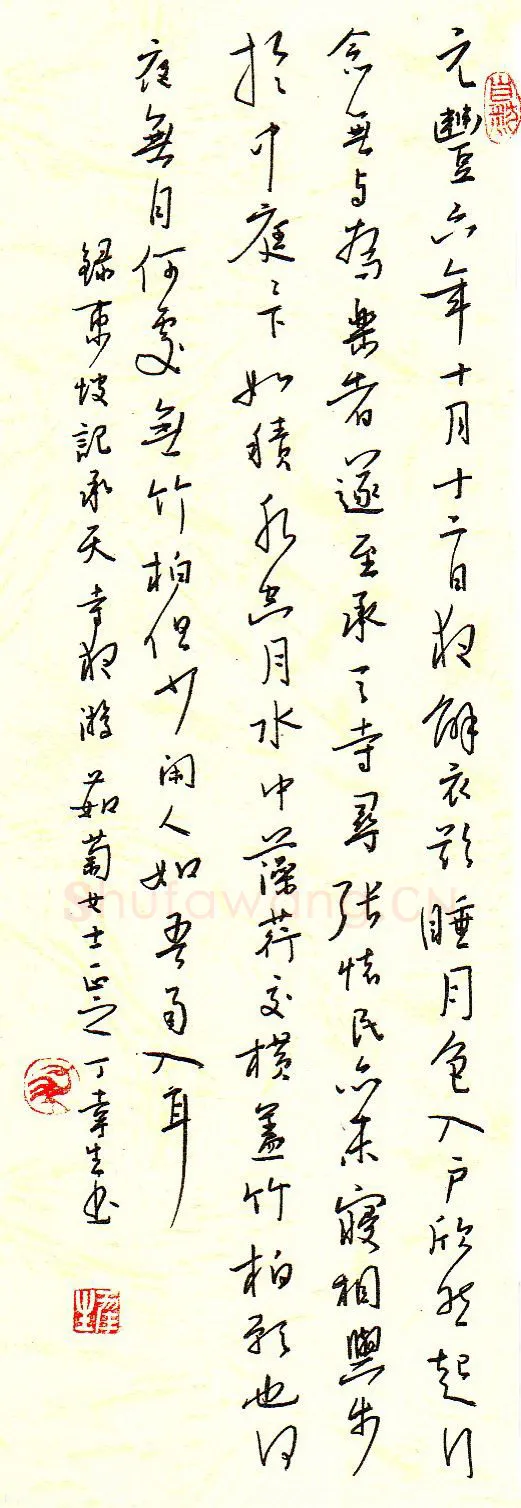 元豐六年十月十二日夜解衣欲睡月色入户欣然起行
念無与為樂者遂至承天寺尋張懷民亦未寢相與步
於中庭庭下如積水空月水中藻荇交橫蓋竹柏影也何
夜無月何處無竹柏但少闲人如吾两人耳
録東坡記承天寺夜游 茹菊女士正之 丁幸生书
Shufawang.CN